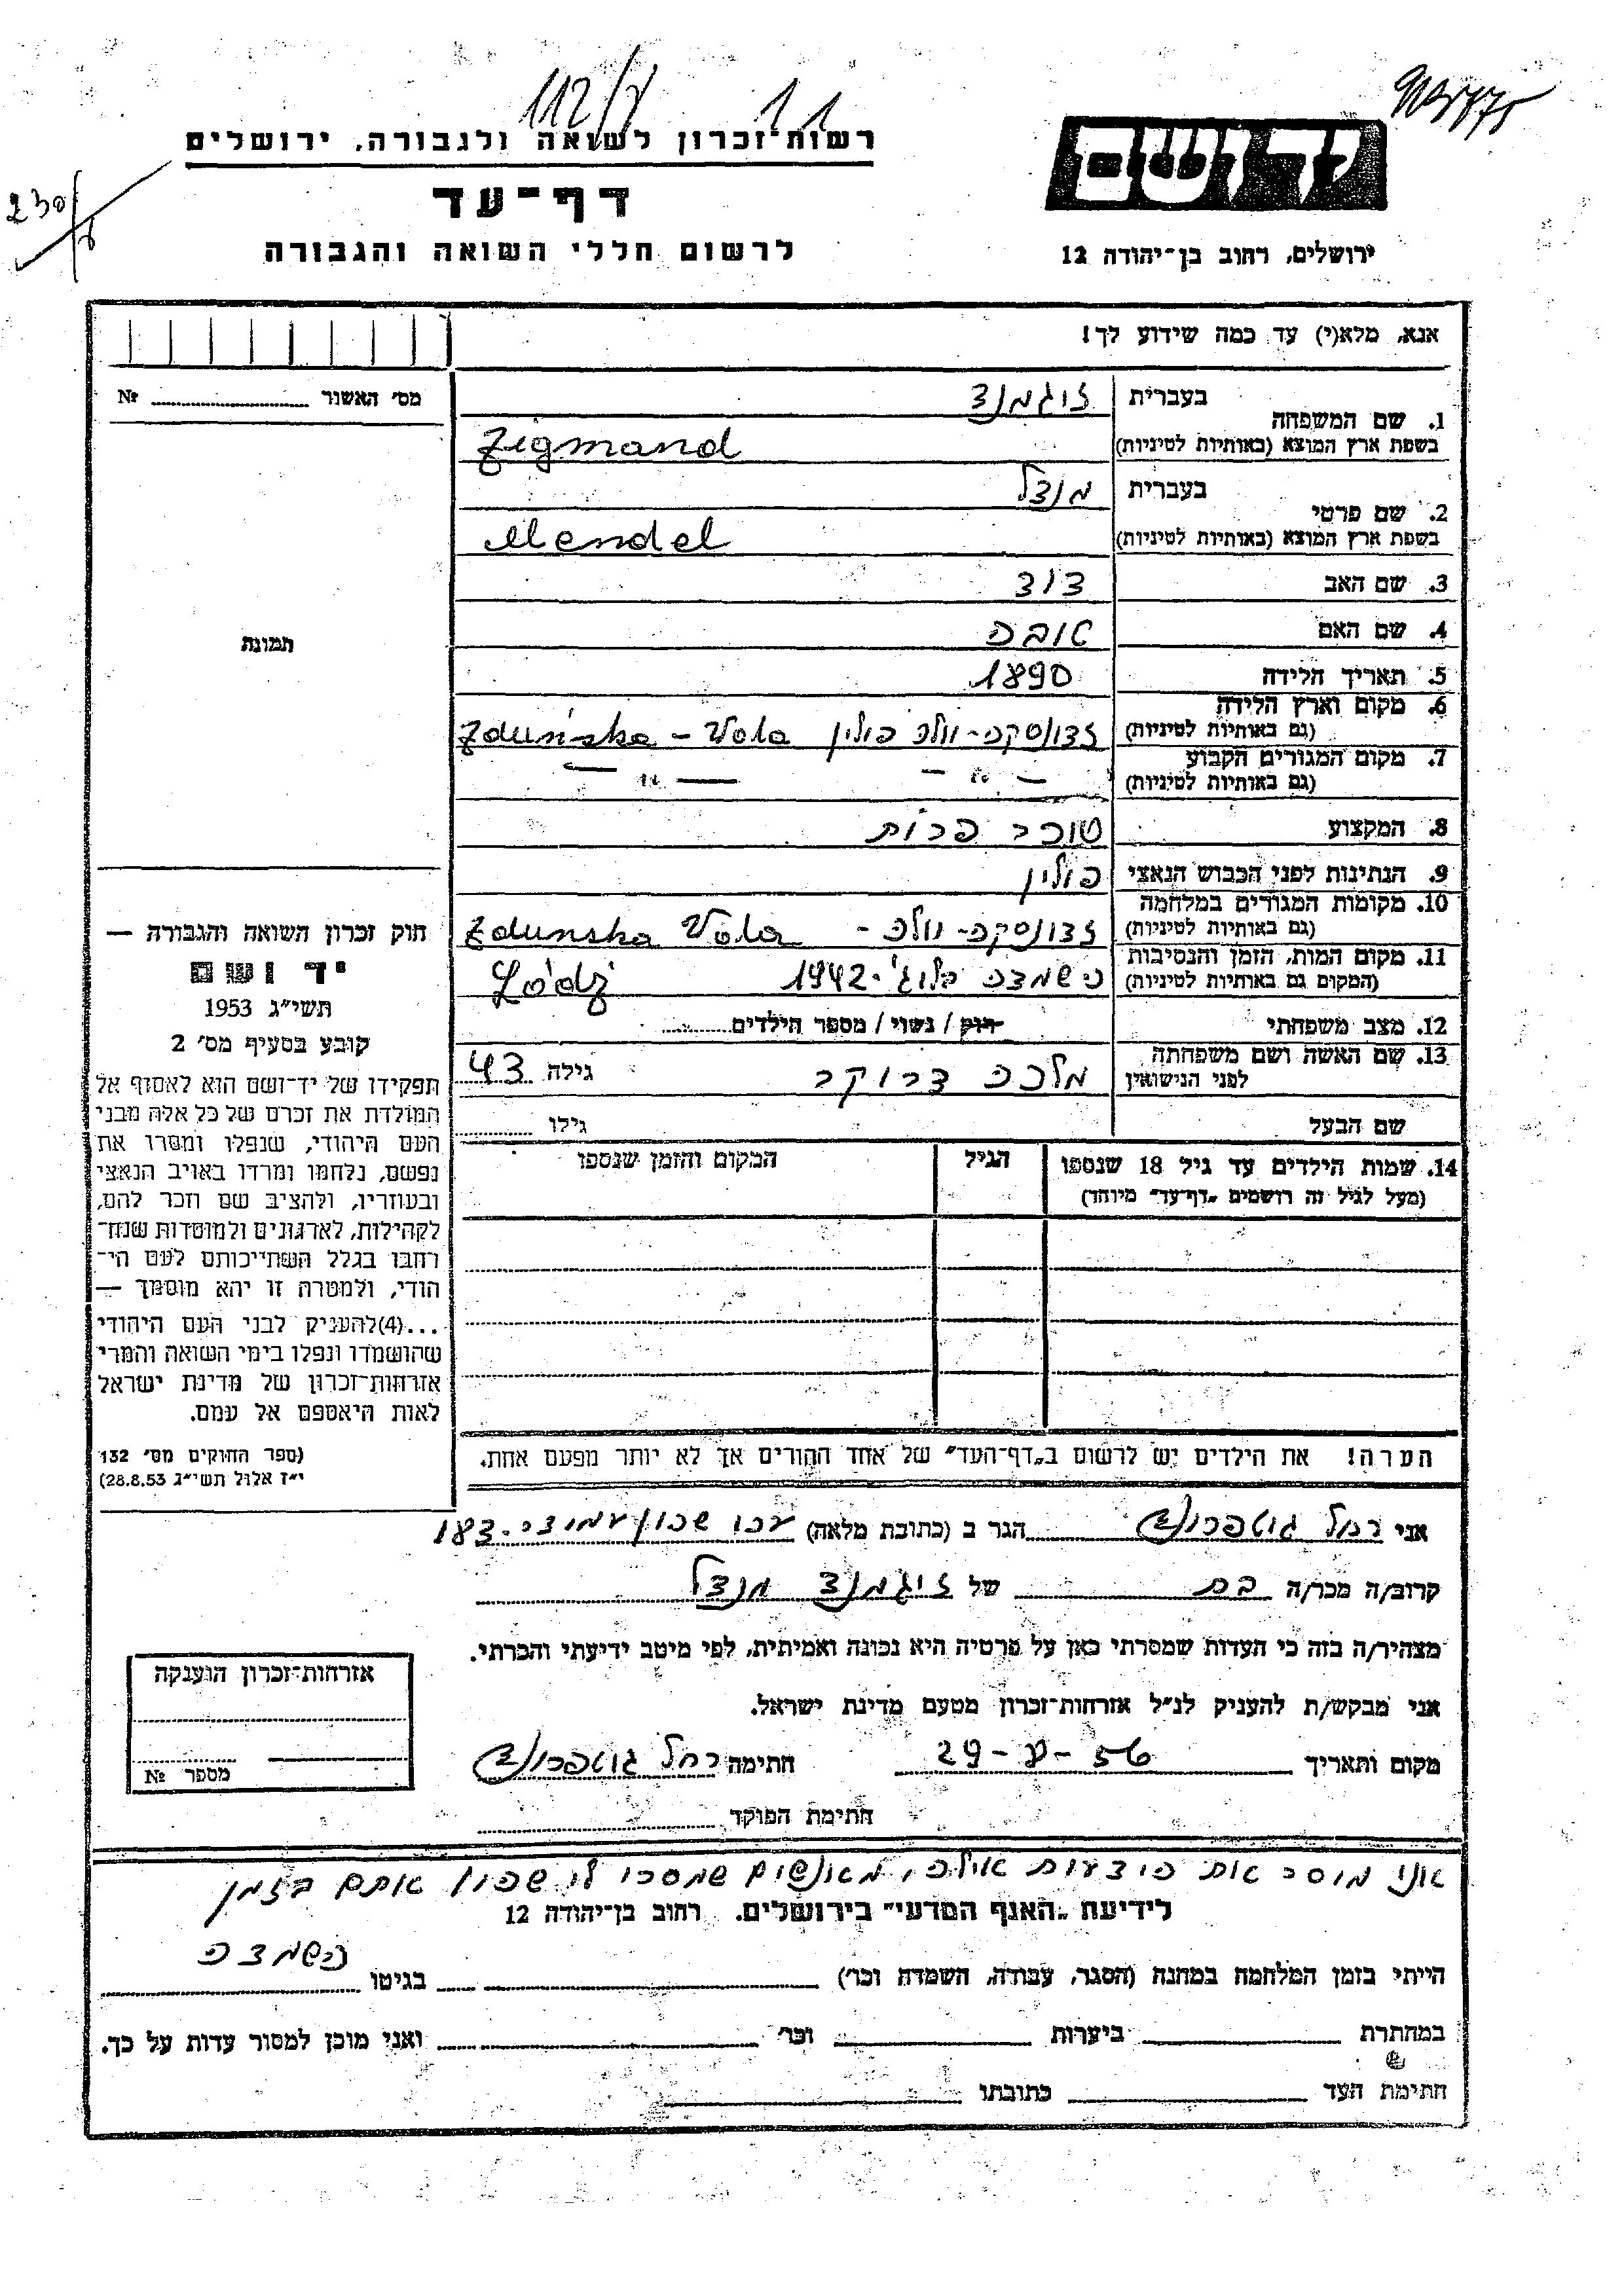 112/ל 11
230/ל
רשות-זכרון לשואה ולגבורה, ירושלים
דף-עד
לרשום חללי השואה והגבורה
יד ושם
ירושלים, רחוב בן-יהודה 12
אנא, מלא(י) עד כמה שידוע לך!
מס׳ האשור № ........
תמונה
1. שם המשפחה בעברית זיגמנד
בשפת ארץ המוצא (באותיות לטיניות) Zigmand
2. שם פרטי בעברית מנדל
בשפת ארץ המוצא (באותיות לטיניות) Mendel
3. שם האב דוד
4. שם האם טובה
5. תאריך הלידה 1890
6. מקום וארץ הלידה (גם באותיות לטיניות) זדונסקה-וולה פולין Zduńska - Vola
7. מקום המגורים הקבוע (גם באותיות לטיניות) — " — — " —
8. המקצוע סוכר פרות
9. הנתינות לפני הכבוש הנאצי פולין
10. מקומות המגורים במלחמה (גם באותיות לטיניות) זדונסקה-וולה - Zdunska Vola
11. מקום המות, הזמן והנסיבות (המקום גם באותיות לטיניות) השמדה בלוג׳-1942 Łódź
12. מצב משפחתי רוק / נשוי / מספר הילדים ........
13. שם האשה ושם משפחתה לפני הנישואין מלכה דרוקר גילה 43
שם הבעל גילו ........
14. שמות הילדים עד גיל 18 שנספו הגיל המקום והזמן שנספו
(מעל לגיל זה רושמים „דף-עד״ מיוחד)
הערה! את הילדים יש לרשום ב„דף-העד״ של אחד ההורים אך לא יותר מפעם אחת.
חוק זכרון השואה והגבורה —
יד ושם
תשי״ג 1953
קובע בסעיף מס׳ 2
תפקידו של יד-ושם הוא לאסוף אל
המולדת את זכרם של כל אלה מבני
העם היהודי, שנפלו ומסרו את
נפשם, נלחמו ומרדו באויב הנאצי
ובעוזריו, ולהציב שם וזכר להם,
לקהילות, לארגונים ולמוסדות שנח-
רבו בגלל השתייכותם לעם הי-
הודי, ולמטרה זו יהא מוסמך —
...(4)להעניק לבני העם היהודי
שהושמדו ונפלו בימי השואה והמרי
אזרחות-זכרון של מדינת ישראל
לאות היאספם אל עמם.
(ספר החוקים מס׳ 132
י״ז אלול תשי״ג 28.8.53)
אני רחל גוטפרוינד הגר ב (כתובת מלאה) עכו שכון עמידר-183
קרוב/ה מכר/ה בת של זיגמנד מנדל
מצהיר/ה בזה כי העדות שמסרתי כאן על פרטיה היא נכונה ואמיתית, לפי מיטב ידיעתי והכרתי.
אני מבקש/ת להעניק לנ״ל אזרחות-זכרון מטעם מדינת ישראל.
מקום ותאריך 29-V-56 חתימה רחל גוטפרוינד
חתימת הפוקד ........
אזרחות-זכרון הוענקה
מספר №
אני מוסר את הידעות אילה, מאנשים שמסרו לי שהיו אתם בזמן
השמדה
לידיעת „האגף המדעי״ בירושלים. רחוב בן-יהודה 12
הייתי בזמן המלחמה במחנה (הסגר, עבודה, השמדה וכו׳) בגיטו
במחתרת ביערות וכו׳ ואני מוכן למסור עדות על כך.
חתימת העד כתובתו